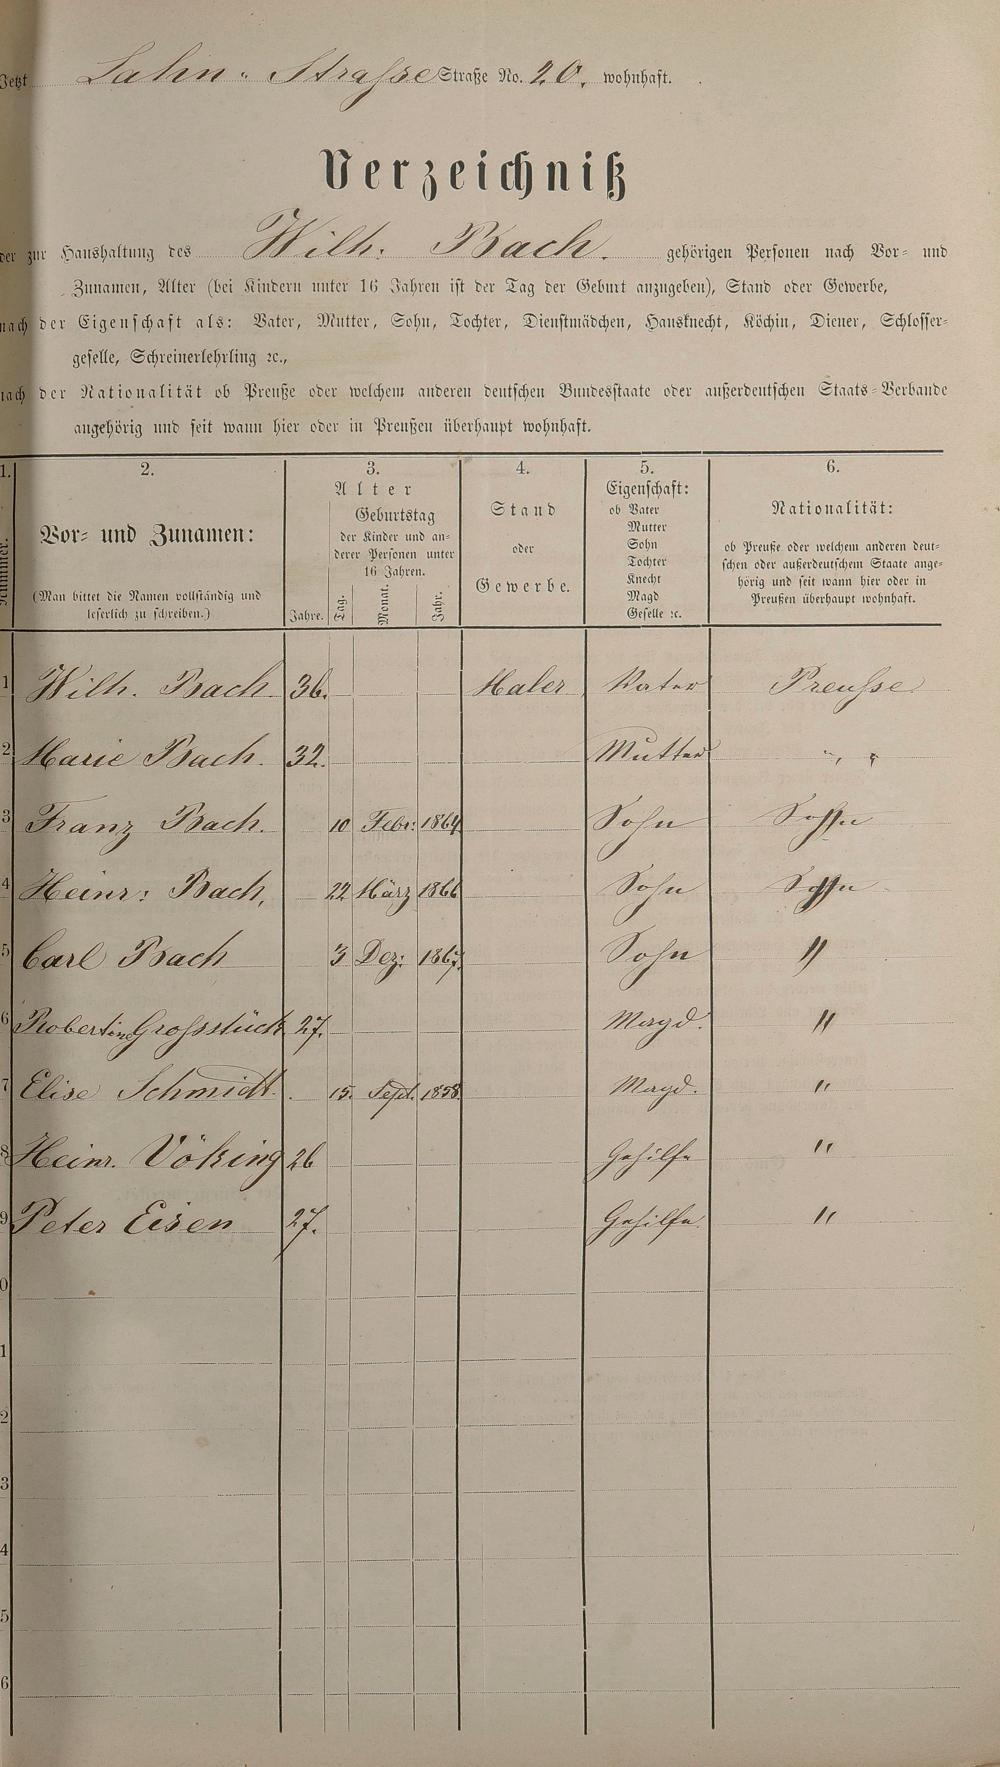 Jetzt Lahn-Strasse Straße No. 20. wohnhaft.
Verzeichniß
der zur Haushaltung des Wilh: Bach. gehörigen Personen nach Vor- und
Zunamen, Alter (bei Kindern unter 16 Jahren ist der Tag der Geburt anzugeben), Stand oder Gewerbe,
nach der Eigenschaft als: Vater, Mutter, Sohn, Tochter, Dienstmädchen, Hausknecht, Köchin, Diener, Schlosser-
geselle, Schreinerlehrling ꝛc.,
nach der Nationalität ob Preuße oder welchem anderen deutschen Bundesstaate oder außerdeutschen Staats-Verbande
angehörig und seit wann hier oder in Preußen überhaupt wohnhaft.
1. 2. 3. 4. 5. 6.
Nummer.
Vor- und Zunamen:
(Man bittet die Namen vollständig und
leserlich zu schreiben.)
Alter
Jahre.
Geburtstag
der Kinder und an-
derer Personen unter
16 Jahren.
Tag. Monat. Jahr.
Stand
oder
Gewerbe.
Eigenschaft:
ob Vater
Mutter
Sohn
Tochter
Knecht
Magd
Geselle ꝛc.
Nationalität:
ob Preuße oder welchem anderen deut-
schen oder außerdeutschem Staate ange-
hörig und seit wann hier oder in
Preußen überhaupt wohnhaft.
1 Wilh. Bach 36. Maler Vater Preusse
2 Marie Bach. 32. Mutter " "
3 Franz Bach. 10 Febr: 1864 Sohn Sohn "
4 Heinr: Bach, 22 März 1866 Sohn Sohn "
5 Carl Bach 3 Dez: 1867. Sohn "
6 Robertine Grossstück 27. Magd. "
7 Elise Schmidt. 15. Sept. 1858 Magd. "
8 Heinr. Vöking 26 Gehilfe "
9 Peter Eisen 27. Gehilfe "
0
1
2
3
4
5
6